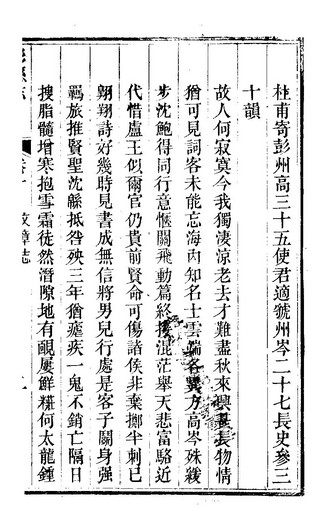 杜甫寄彭州高三十五使君適虢州岑二十七長史參三
十韻
故人何寂寞今我獨淒涼老去才難盡秋來興甚長物情
猶可見詞客未能忘海內知名士雲端各異方高岑殊緩
步沈鮑得同行意愜關飛動篇終接混茫舉天悲富駱近
代惜盧王似爾官仍貴前賢命可傷諸侯非棄擲半刺已
翱翔詩好幾時見書成無信將男兒行處是客子鬬身强
羈旅推賢聖沈緜抵咎殃三年猶瘧疾一鬼不銷亡隔日
搜脂髓增寒抱雪霜徒然潛隙地有靦屢鮮糚何太龍鍾
文章志